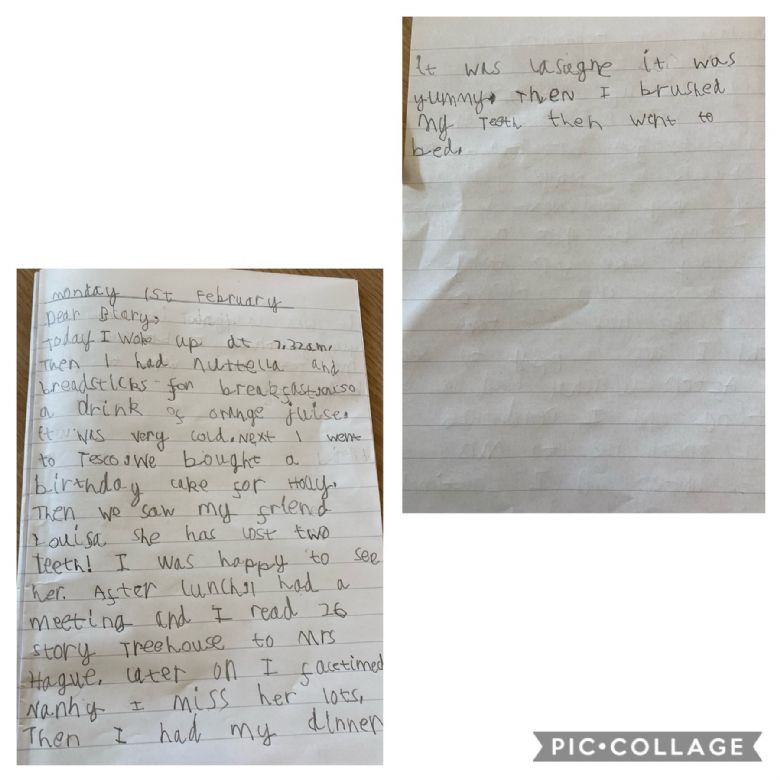 Monday 1st February
Dear Diary,
Today I woke up at 7.32am.
Then I had nuttella and
breadsticks for breakfast. Also
a drink of orange juise.
It was very cold. Next I went
to Tesco. We bought a
birthday cake for Holly.
Then we saw my friend
Louisa she has lost two
teeth! I was happy to see
her. After lunch I had a
meeting and I read 26
story Treehouse to Mrs
Hague. Later on I facetimed
Nanny I miss her lots.
Then I had my dinner
It was lasagne it was
yummy. Then I brushed
my Teeth then went to
bed.
PIC•COLLAGE